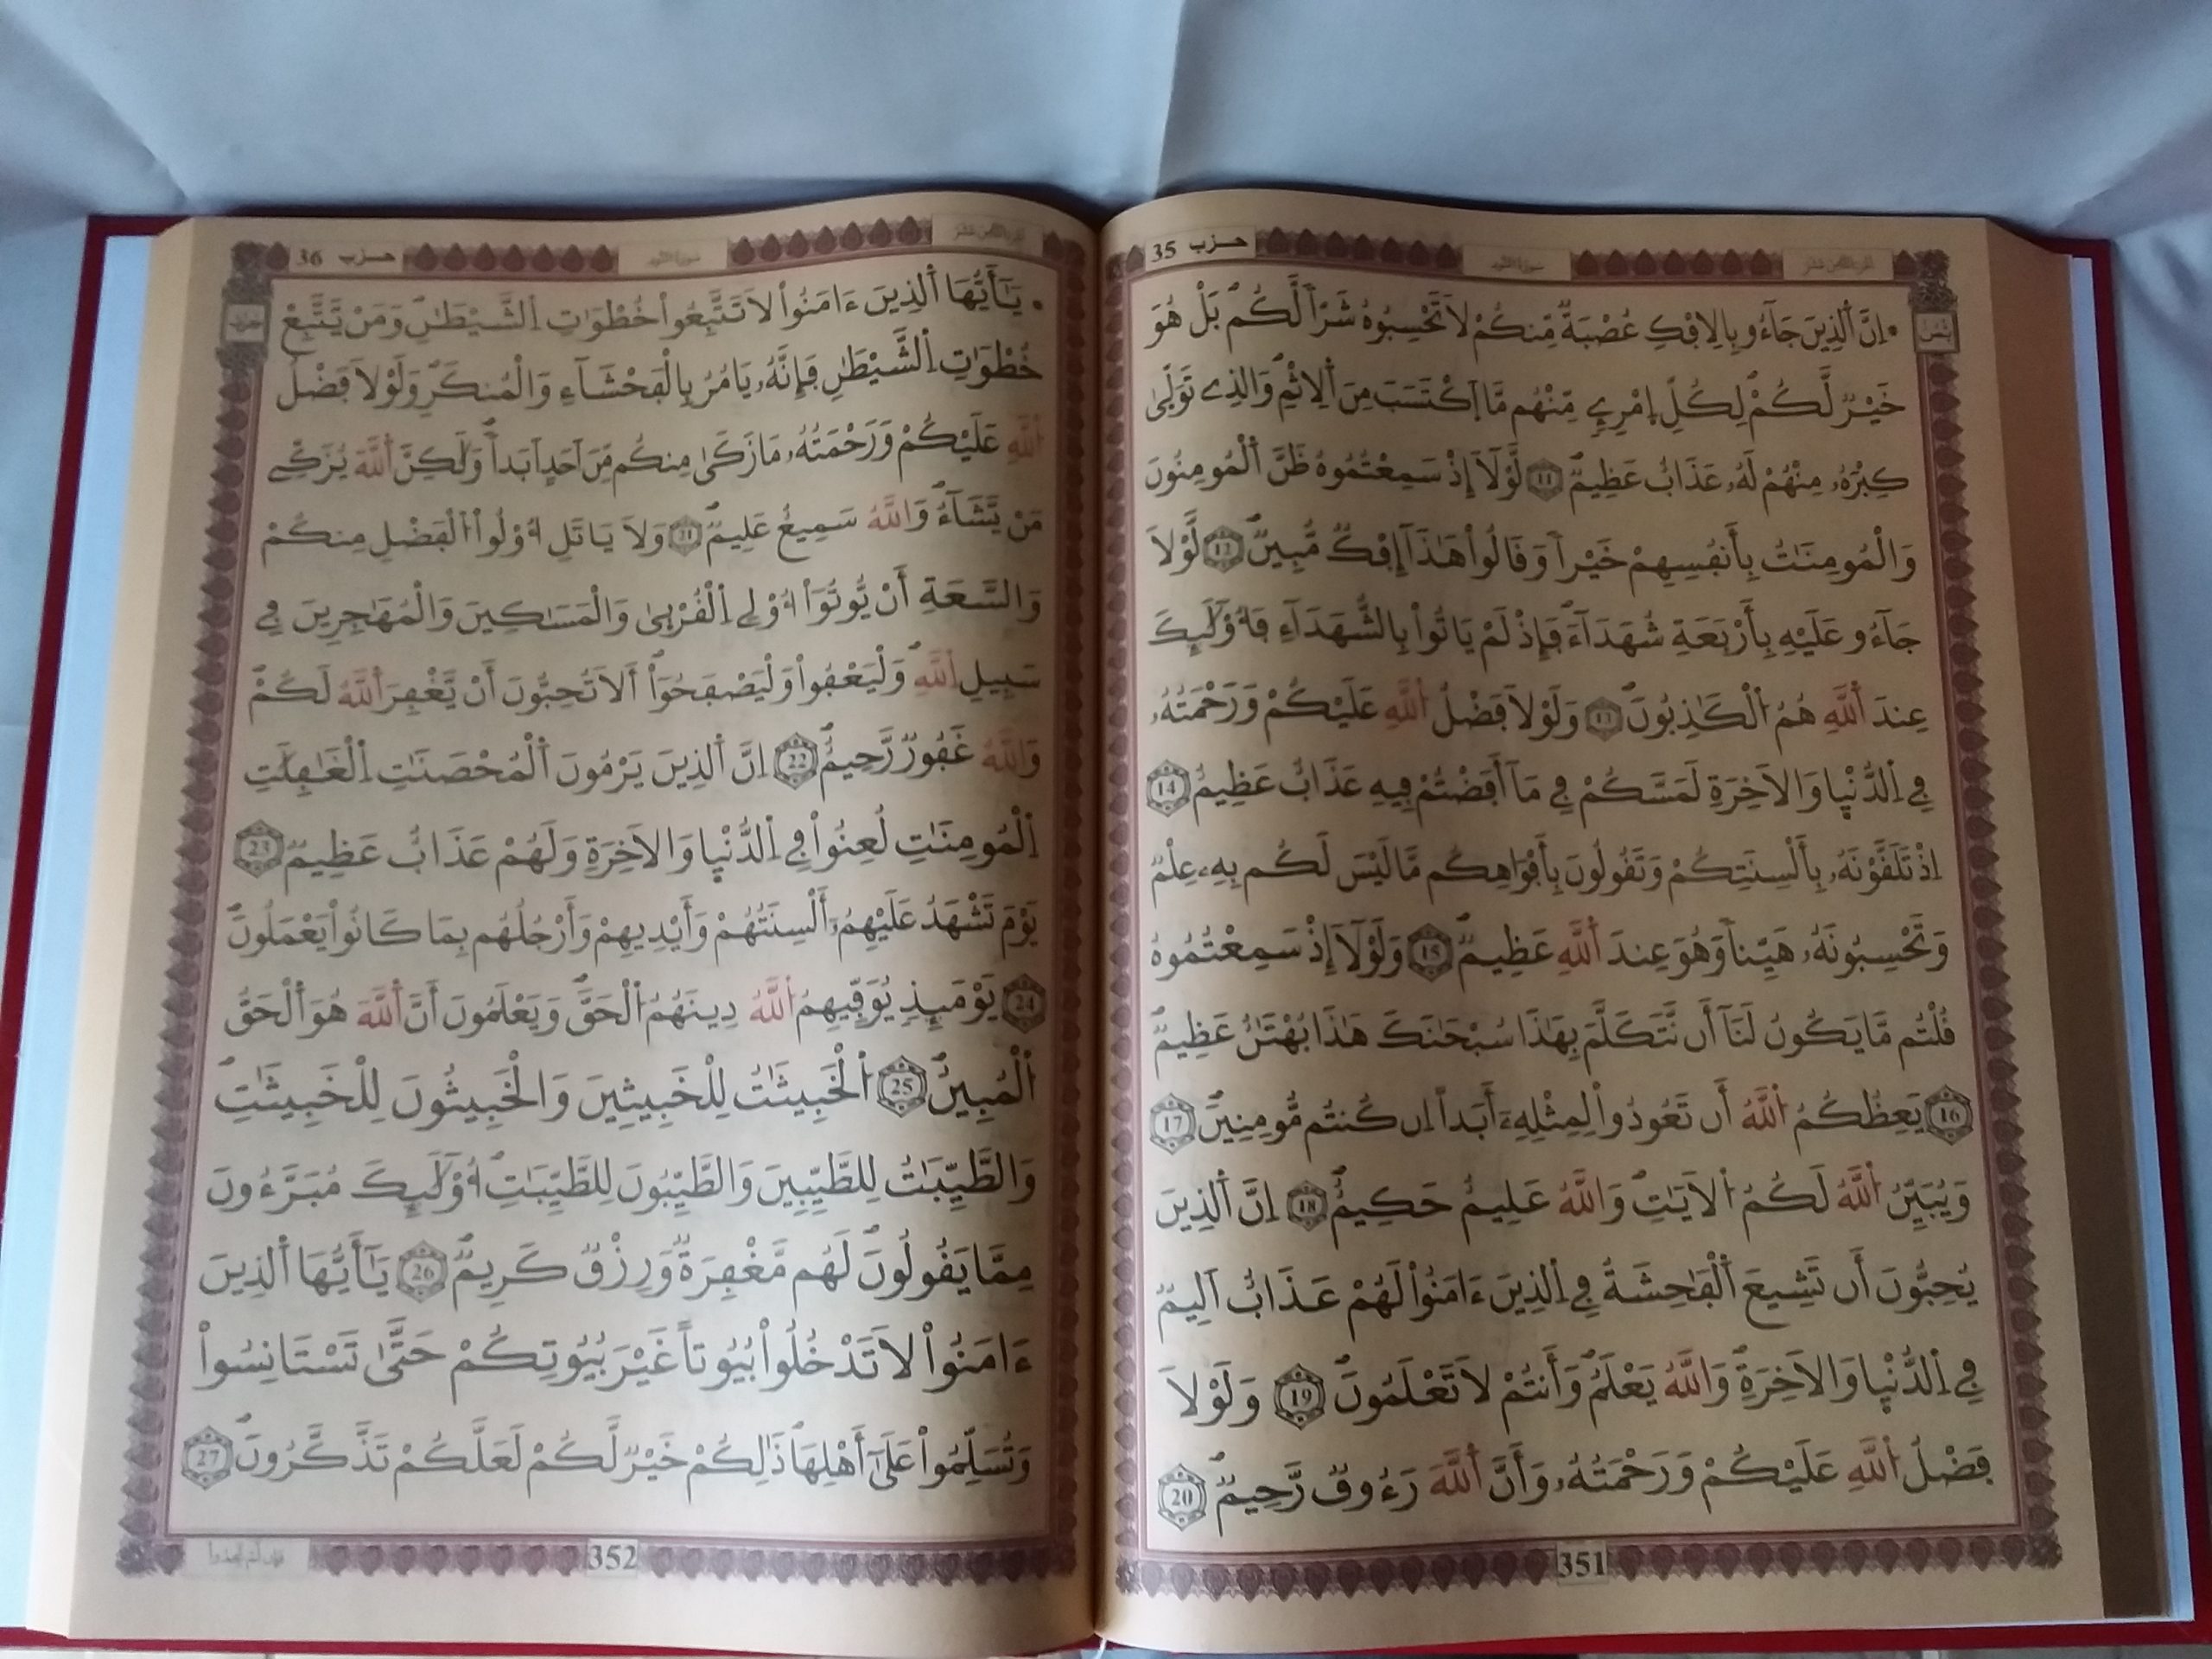 حزب 35
سورة النور
الجزء الثامن عشر
ثمن
اِنَّ اَ۬لذِينَ جَآءُو بِالِافْكِ عُصْبَةٞ مِّنكُمْ لَا تَحْسِبُوهُ شَرّاٗ لَّكُمۖ بَلْ هُوَ
خَيْرٞ لَّكُمْۖ لِكُلِّ اِ۪مْرِےٕٖ مِّنْهُم مَّا اَ۪كْتَسَبَ مِنَ اَ۬لِاثْمِۖ وَالذِے تَوَلّ۪ىٰ
كِبْرَهُۥ مِنْهُمْ لَهُۥ عَذَابٌ عَظِيمٞۖ 11 لَّوْلَآ إِذْ سَمِعْتُمُوهُ ظَنَّ اَ۬لْمُومِنُونَ
وَالْمُومِنَٰتُ بِأَنفُسِهِمْ خَيْراٗ وَقَالُواْ هَٰذَآ إِفْكٞ مُّبِينٞۖ 12 لَّوْلَا
جَآءُو عَلَيْهِ بِأَرْبَعَةِ شُهَدَآءَۖ فَإِذْ لَمْ يَاتُواْ بِالشُّهَدَآءِ فَأُوْلَٰٓئِكَ
عِندَ اَ۬للَّهِ هُمُ اُ۬لْكَٰذِبُونَۖ 13 وَلَوْلَا فَضْلُ اُ۬للَّهِ عَلَيْكُمْ وَرَحْمَتُهُۥ
فِے اِ۬لدُّنْي۪ا وَالَاخِرَةِ لَمَسَّكُمْ فِے مَآ أَفَضْتُمْ فِيهِ عَذَابٌ عَظِيمٌ 14
اِذْ تَلَقَّوْنَهُۥ بِأَلْسِنَتِكُمْ وَتَقُولُونَ بِأَفْوَاهِكُم مَّا لَيْسَ لَكُم بِهِۦ عِلْمٞ
وَتَحْسِبُونَهُۥ هَيِّناٗ وَهُوَ عِندَ اَ۬للَّهِ عَظِيمٞۖ 15 وَلَوْلَآ إِذْ سَمِعْتُمُوهُ
قُلْتُم مَّا يَكُونُ لَنَآ أَن نَّتَكَلَّمَ بِهَٰذَا سُبْحَٰنَكَ هَٰذَا بُهْتَٰنٌ عَظِيمٞۖ
16 يَعِظُكُمُ اُ۬للَّهُ أَن تَعُودُواْ لِمِثْلِهِۦٓ أَبَداً اِن كُنتُم مُّومِنِينَۖ 17
وَيُبَيِّنُ اُ۬للَّهُ لَكُمُ اُ۬لَايَٰتِۖ وَاللَّهُ عَلِيمٌ حَكِيمٌۖ 18 اِنَّ اَ۬لذِينَ
يُحِبُّونَ أَن تَشِيعَ اَ۬لْفَٰحِشَةُ فِے اِ۬لذِينَ ءَامَنُواْ لَهُمْ عَذَابٌ اَلِيمٞ
فِے اِ۬لدُّنْي۪ا وَالَاخِرَةِۖ وَاللَّهُ يَعْلَمُۖ وَأَنتُمْ لَا تَعْلَمُونَۖ 19 وَلَوْلَا
فَضْلُ اُ۬للَّهِ عَلَيْكُمْ وَرَحْمَتُهُۥ وَأَنَّ اَ۬للَّهَ رَءُوفٞ رَّحِيمٞۖ 20
351
حزب 36
سورة النور
الجزء الثامن عشر
حزب
يَٰٓأَيُّهَا اَ۬لذِينَ ءَامَنُواْ لَا تَتَّبِعُواْ خُطْوَٰتِ اِ۬لشَّيْطَٰنِۖ وَمَنْ يَّتَّبِعْ
خُطْوَٰتِ اِ۬لشَّيْطَٰنِ فَإِنَّهُۥ يَامُرُ بِالْفَحْشَآءِ وَالْمُنكَرِۖ وَلَوْلَا فَضْلُ
اُ۬للَّهِ عَلَيْكُمْ وَرَحْمَتُهُۥ مَا زَك۪ىٰ مِنكُم مِّنَ اَحَدٍ اَبَداٗۖ وَلَٰكِنَّ اَ۬للَّهَ يُزَكِّے
مَنْ يَّشَآءُۖ وَاللَّهُ سَمِيعٌ عَلِيمٞۖ 21 وَلَا يَاتَلِ أُوْلُواْ اُ۬لْفَضْلِ مِنكُمْ
وَالسَّعَةِ أَنْ يُّوتُوٓاْ أُوْلِے اِ۬لْقُرْب۪ىٰ وَالْمَسَٰكِينَ وَالْمُهَٰجِرِينَ فِے
سَبِيلِ اِ۬للَّهِۖ وَلْيَعْفُواْ وَلْيَصْفَحُوٓاْۖ أَلَا تُحِبُّونَ أَنْ يَّغْفِرَ اَ۬للَّهُ لَكُمْۖ
وَاللَّهُ غَفُورٞ رَّحِيمٌۖ 22 اِنَّ اَ۬لذِينَ يَرْمُونَ اَ۬لْمُحْصَنَٰتِ اِ۬لْغَٰفِلَٰتِ
اِ۬لْمُومِنَٰتِ لُعِنُواْ فِے اِ۬لدُّنْي۪ا وَالَاخِرَةِ وَلَهُمْ عَذَابٌ عَظِيمٞ 23
يَوْمَ تَشْهَدُ عَلَيْهِمُۥٓ أَلْسِنَتُهُمْ وَأَيْدِيهِمْ وَأَرْجُلُهُم بِمَا كَانُواْ يَعْمَلُونَۖ
24 يَوْمَئِذٖ يُوَفِّيهِمُ اُ۬للَّهُ دِينَهُمُ اُ۬لْحَقَّۖ وَيَعْلَمُونَ أَنَّ اَ۬للَّهَ هُوَ اَ۬لْحَقُّ
اُ۬لْمُبِينُۖ 25 اُ۬لْخَبِيثَٰتُ لِلْخَبِيثِينَ وَالْخَبِيثُونَ لِلْخَبِيثَٰتِۖ
وَالطَّيِّبَٰتُ لِلطَّيِّبِينَ وَالطَّيِّبُونَ لِلطَّيِّبَٰتِۖ أُوْلَٰٓئِكَ مُبَرَّءُونَ
مِمَّا يَقُولُونَۖ لَهُم مَّغْفِرَةٞ وَرِزْقٞ كَرِيمٞۖ 26 يَٰٓأَيُّهَا اَ۬لذِينَ
ءَامَنُواْ لَا تَدْخُلُواْ بُيُوتاً غَيْرَ بُيُوتِكُمْ حَتَّىٰ تَسْتَانِسُواْ
وَتُسَلِّمُواْ عَلَىٰٓ أَهْلِهَاۖ ذَٰلِكُمْ خَيْرٞ لَّكُمْ لَعَلَّكُمْ تَذَّكَّرُونَۖ 27
فإن لم تجدوا
352